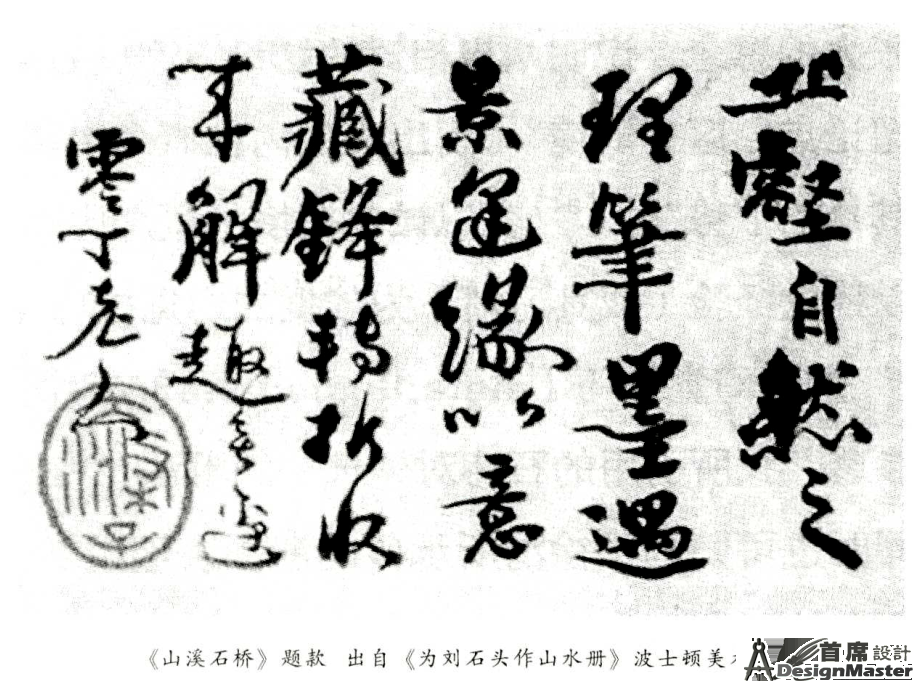 丘壑自然之
理筆墨遇
景逢緣以意
藏鋒轉折收
来解趣無邊
零丁老人
《山溪石桥》题款 出自《为刘石头作山水册》波士顿美
首席設計
DesignMaster